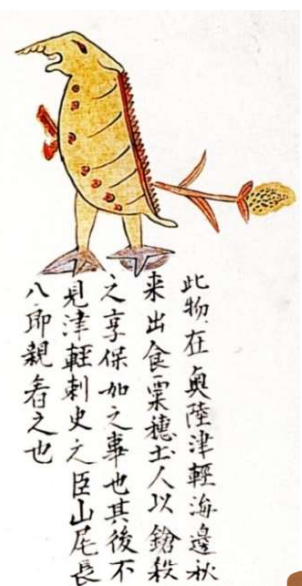 此物在奥陸津軽海邊秋
来出食粟穂土人以鎗殺
之享保加之事也其後不
見津軽刺史之臣山尾長
八郎親看之也